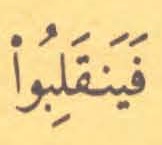 فَيَنقَلِبُوا۟